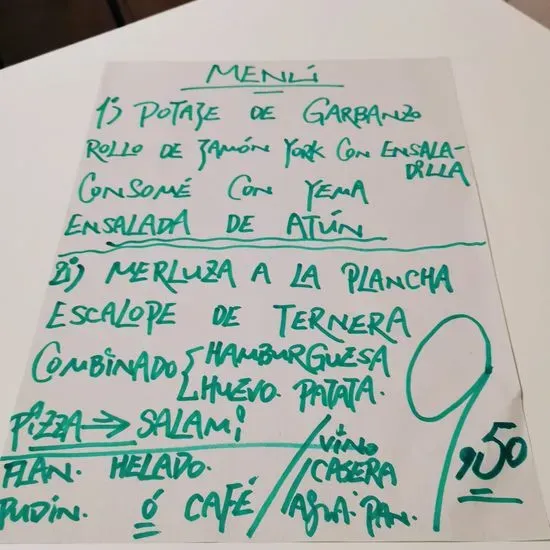 MENÚ
1) POTAJE DE GARBANZO
ROLLO DE JAMÓN YORK CON ENSALA-
DILLA
CONSOMÉ CON YEMA
ENSALADA DE ATÚN
2) MERLUZA A LA PLANCHA
ESCALOPE DE TERNERA
COMBINADO { HAMBURGUESA
HUEVO. PATATA.
PIZZA → SALAMI
FLAN. HELADO.
PUDIN. Ó CAFÉ
/ VINO
/ CASERA
AGUA. PAN.
9,50